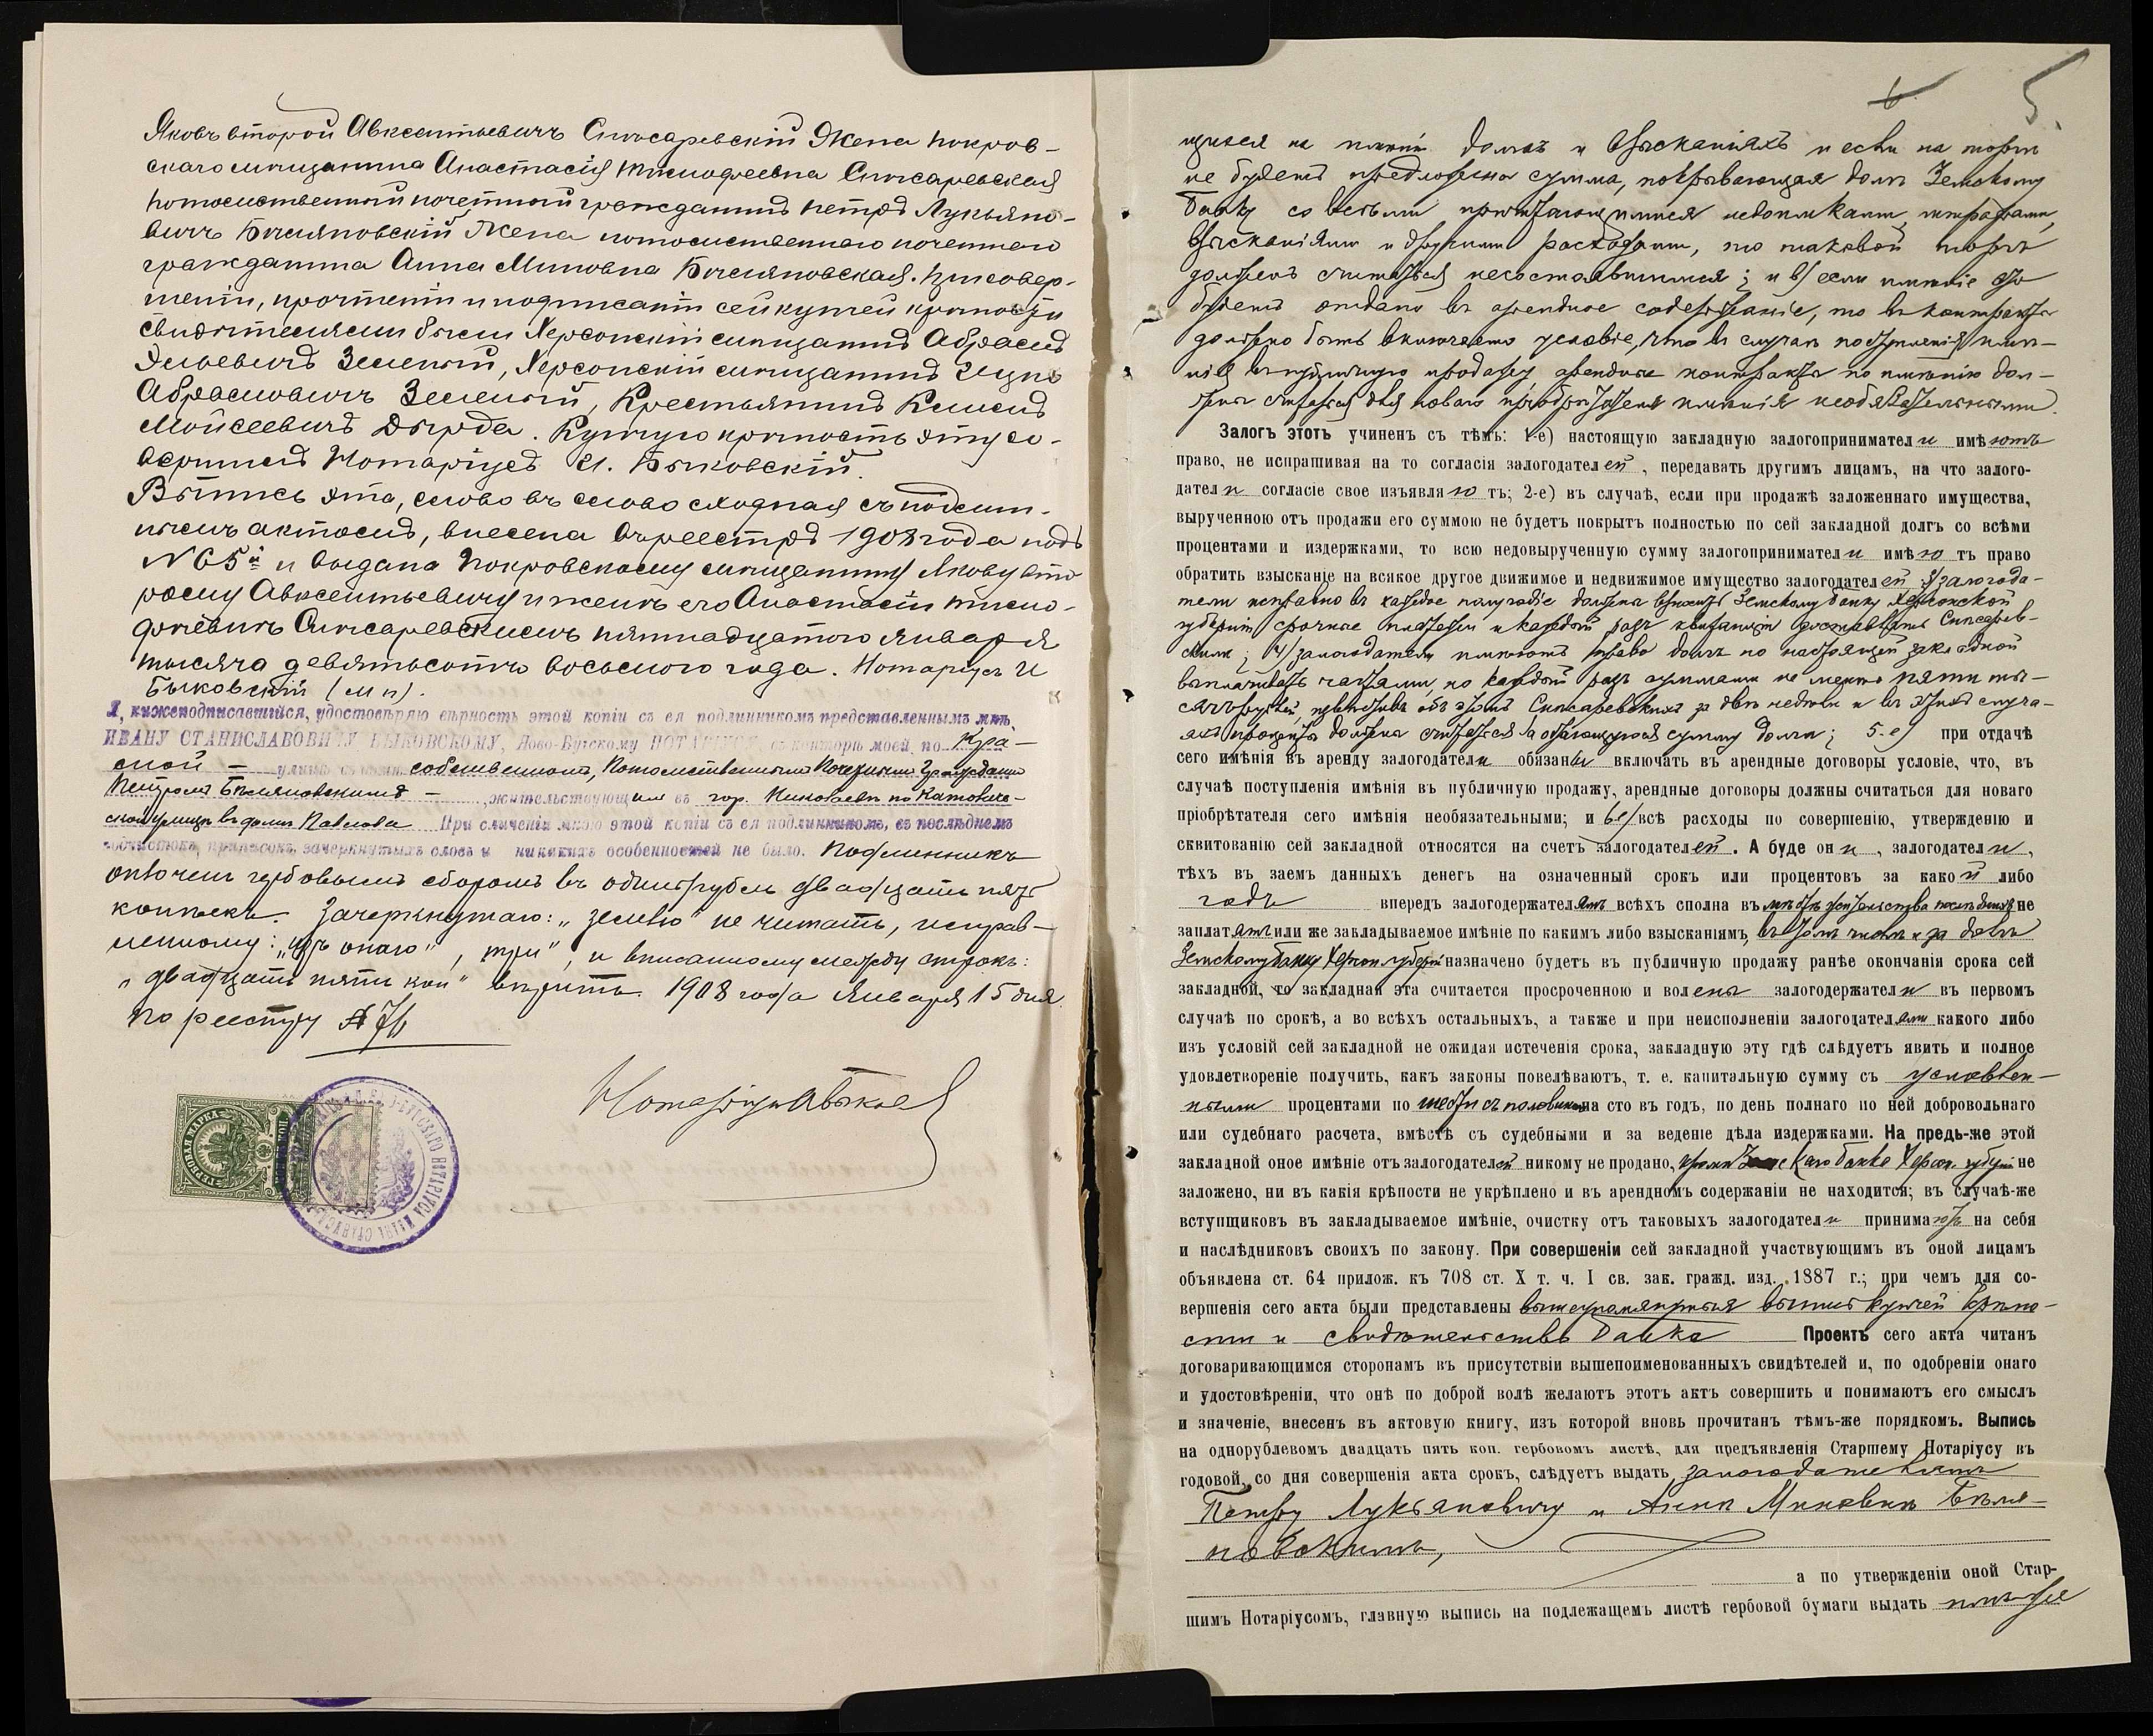 Яковъ второй Авксентьевичъ Слюсаревскій Жена покров-
скаго мѣщанина Анастасія Тимофеевна Слюсаревская
потомственный почетный гражданинъ Петръ Лукьяно-
вичъ Бѣляновскій Жена потомственнаго почетнаго
гражданина Анна Миновна Бѣляновская. При совер-
шеніи, прочтеніи и подписаніи сей купчей крѣпости
свидѣтелями были Херсонскій мѣщанинъ Абрамъ
Эльевичъ Зеленый, Херсонскій мѣщанинъ Ицко
Абрамовичъ Зеленый, Крестьянинъ Климъ
Мойсеевичъ Дырда. Купчую крѣпость эту со-
вершилъ Нотаріусъ И. Быковскій.
Выпись эта, слово въ слово сходная съ подлин-
нымъ актомъ, внесена въ реестръ 1908 года подъ
N 65й и выдана Покровскому мѣщанину Якову вто-
рому Авксентьевичу и женѣ его Анастасіи Тимо-
феевнѣ Слюсаревскимъ пятнадцатого Января
тысяча девятьсотъ восьмого года. Нотаріусъ И
Быковскій (М п).
Я, нижеподписавшійся, удостовѣряю вѣрность этой копіи съ ея подлинникомъ представленнымъ мнѣ
ИВАНУ СТАНИСЛАВОВИЧУ БЫКОВСКОМУ, Ново-Бугскому НОТАРІУСУ въ конторѣ моей, по Кра-
сной - улицѣ въ домѣ собственномъ, Потомственнымъ Почетнымъ Гражданин
Петромъ Бѣляновскимъ - , жительствующимъ въ гор. Николаевѣ по Католиче-
ской улицѣ въ домѣ Павлова При сличеніи мною этой копіи съ ея подлинникомъ, въ послѣднемъ
почистокъ, приписокъ, зачеркнутыхъ словъ и никакихъ особенностей не было. Подлинникъ
оплочен гербовымъ сборомъ въ одинъ рубль двадцать пять
копѣекъ. Зачеркнутаго: „землю" не читать, исправ-
ленному: „изъ онаго", „три", и вписанному между строкъ:
„двадцать пять коп" вѣрить. 1908 года Января 15 дня.
По реестру № 76
Нотаріусъ И Быковскій
ГЕРБОВАЯ МАРКА
6
5
щихся на имѣніи долгахъ и взысканіяхъ и если на торгѣ
не будетъ предложена сумма, покрывающая долгъ Земскому
банку со всѣми причитающимися недоимками, штрафами,
взысканіями и другими расходами, то таковой торгъ
долженъ считаться несостоявшимся; и в) если имѣніе это
будетъ отдано въ арендное содержаніе, то въ контрактѣ
должно быть включаемо условіе, что въ случаѣ поступленія имѣ-
нія въ публичную продажу, арендные контракты по имѣнію дол-
жны считаться для новаго пріобрѣтателя имѣнія необязательными.
Залогъ этотъ учиненъ съ тѣмъ: 1-е) настоящую закладную залогоприниматели имѣютъ
право, не испрашивая на то согласія залогодателей, передавать другимъ лицамъ, на что залого-
датели согласіе свое изъявляютъ; 2-е) въ случаѣ, если при продажѣ заложеннаго имущества,
вырученною отъ продажи его суммою не будетъ покрытъ полностью по сей закладной долгъ со всѣми
процентами и издержками, то всю недовырученную сумму залогоприниматели имѣютъ право
обратить взысканіе на всякое другое движимое и недвижимое имущество залогодателей 3) залогода-
тели исправно въ каждое полугодіе должны вносить Земскому банку Херсонской
губерніи срочные платежи и каждый разъ квитанціи доставлять Слюсарев-
скимъ; 4) залогодатели имѣютъ право долгъ по настоящей закладной
выплачивать частями, но каждый разъ суммами не менѣе пяти ты-
сячъ рублей, извѣстивъ объ этомъ Слюсаревскихъ за двѣ недѣли и въ этихъ случа-
яхъ проценты должны считаться на остающуюся сумму долга; 5-е) при отдачѣ
сего имѣнія въ аренду залогодатели обязаны включать въ арендные договоры условіе, что, въ
случаѣ поступленія имѣнія въ публичную продажу, арендные договоры должны считаться для новаго
пріобрѣтателя сего имѣнія необязательными; и 6е) всѣ расходы по совершенію, утвержденію и
сквитованію сей закладной относятся на счетъ залогодателей. А буде они, залогодатели,
тѣхъ въ заемъ данныхъ денегъ на означенный срокъ или процентовъ за какой либо
годъ впередъ залогодержателямъ всѣхъ сполна въ мѣстѣ жительства послѣднихъ не
заплатятъ или же закладываемое имѣніе по какимъ либо взысканіямъ, въ томъ числѣ и за долгъ
Земскому банку Херсон. губерніи назначено будетъ въ публичную продажу ранѣе окончанія срока сей
закладной, то закладная эта считается просроченною и волены залогодержатели въ первомъ
случаѣ по срокѣ, а во всѣхъ остальныхъ, а также и при неисполненіи залогодателями какого либо
изъ условій сей закладной не ожидая истеченія срока, закладную эту гдѣ слѣдуетъ явить и полное
удовлетвореніе получить, какъ законы повелѣваютъ, т. е. капитальную сумму съ условлен-
ными процентами по шести съ половиною на сто въ годъ, по день полнаго по ней добровольнаго
или судебнаго расчета, вмѣстѣ съ судебными и за веденіе дѣла издержками. На предь-же этой
закладной оное имѣніе отъ залогодателей никому не продано, кромѣ Земскаго банка Херсон. губерніи не
заложено, ни въ какія крѣпости не укрѣплено и въ арендномъ содержаніи не находится; въ случаѣ-же
вступщиковъ въ закладываемое имѣніе, очистку отъ таковыхъ залогодатели принимаютъ на себя
и наслѣдниковъ своихъ по закону. При совершеніи сей закладной участвующимъ въ оной лицамъ
объявлена ст. 64 прилож. къ 708 ст. X т. ч. I св. зак. гражд. изд. 1887 г.; при чемъ для со-
вершенія сего акта были представлены вышеупомянутыя выпись купчей крѣпо-
сти и свидѣтельство банка Проектъ сего акта читанъ
договаривающимся сторонамъ въ присутствіи вышепоименованныхъ свидѣтелей и, по одобреніи онаго
и удостовѣреніи, что онѣ по доброй волѣ желаютъ этотъ актъ совершить и понимаютъ его смыслъ
и значеніе, внесенъ въ актовую книгу, изъ которой вновь прочитанъ тѣмъ-же порядкомъ. Выпись
на однорублевомъ двадцать пять коп. гербовомъ листѣ, для предъявленія Старшему Нотаріусу въ
годовой, со дня совершенія акта срокъ, слѣдуетъ выдать залогодателямъ
Петру Лукьяновичу и Аннѣ Миновнѣ Бѣля-
новскимъ,
а по утвержденіи оной Стар-
шимъ Нотаріусомъ, главную выпись на подлежащемъ листѣ гербовой бумаги выдать